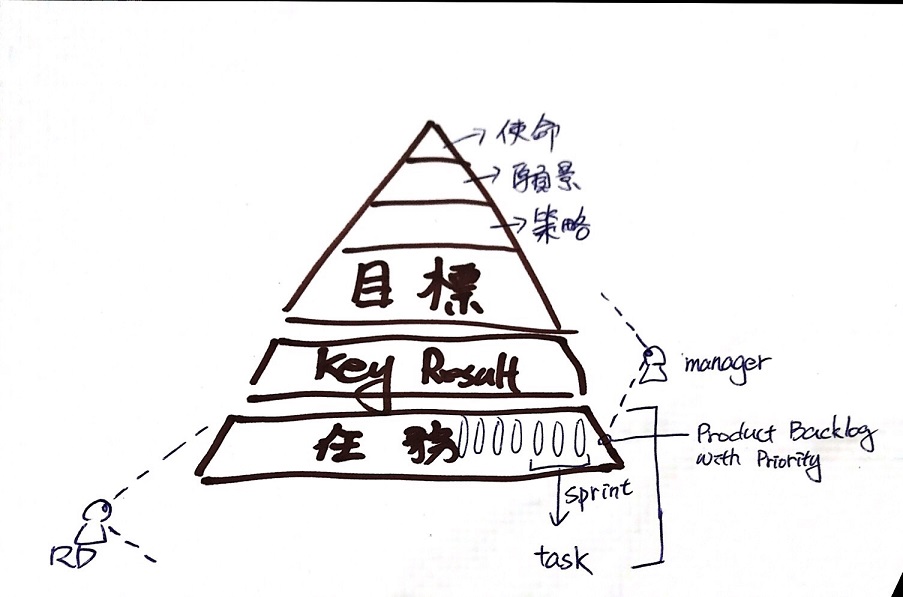 使命
願景
策略
目標
Key Result
manager
任務
Product Backlog
with Priority
sprint
RD
task